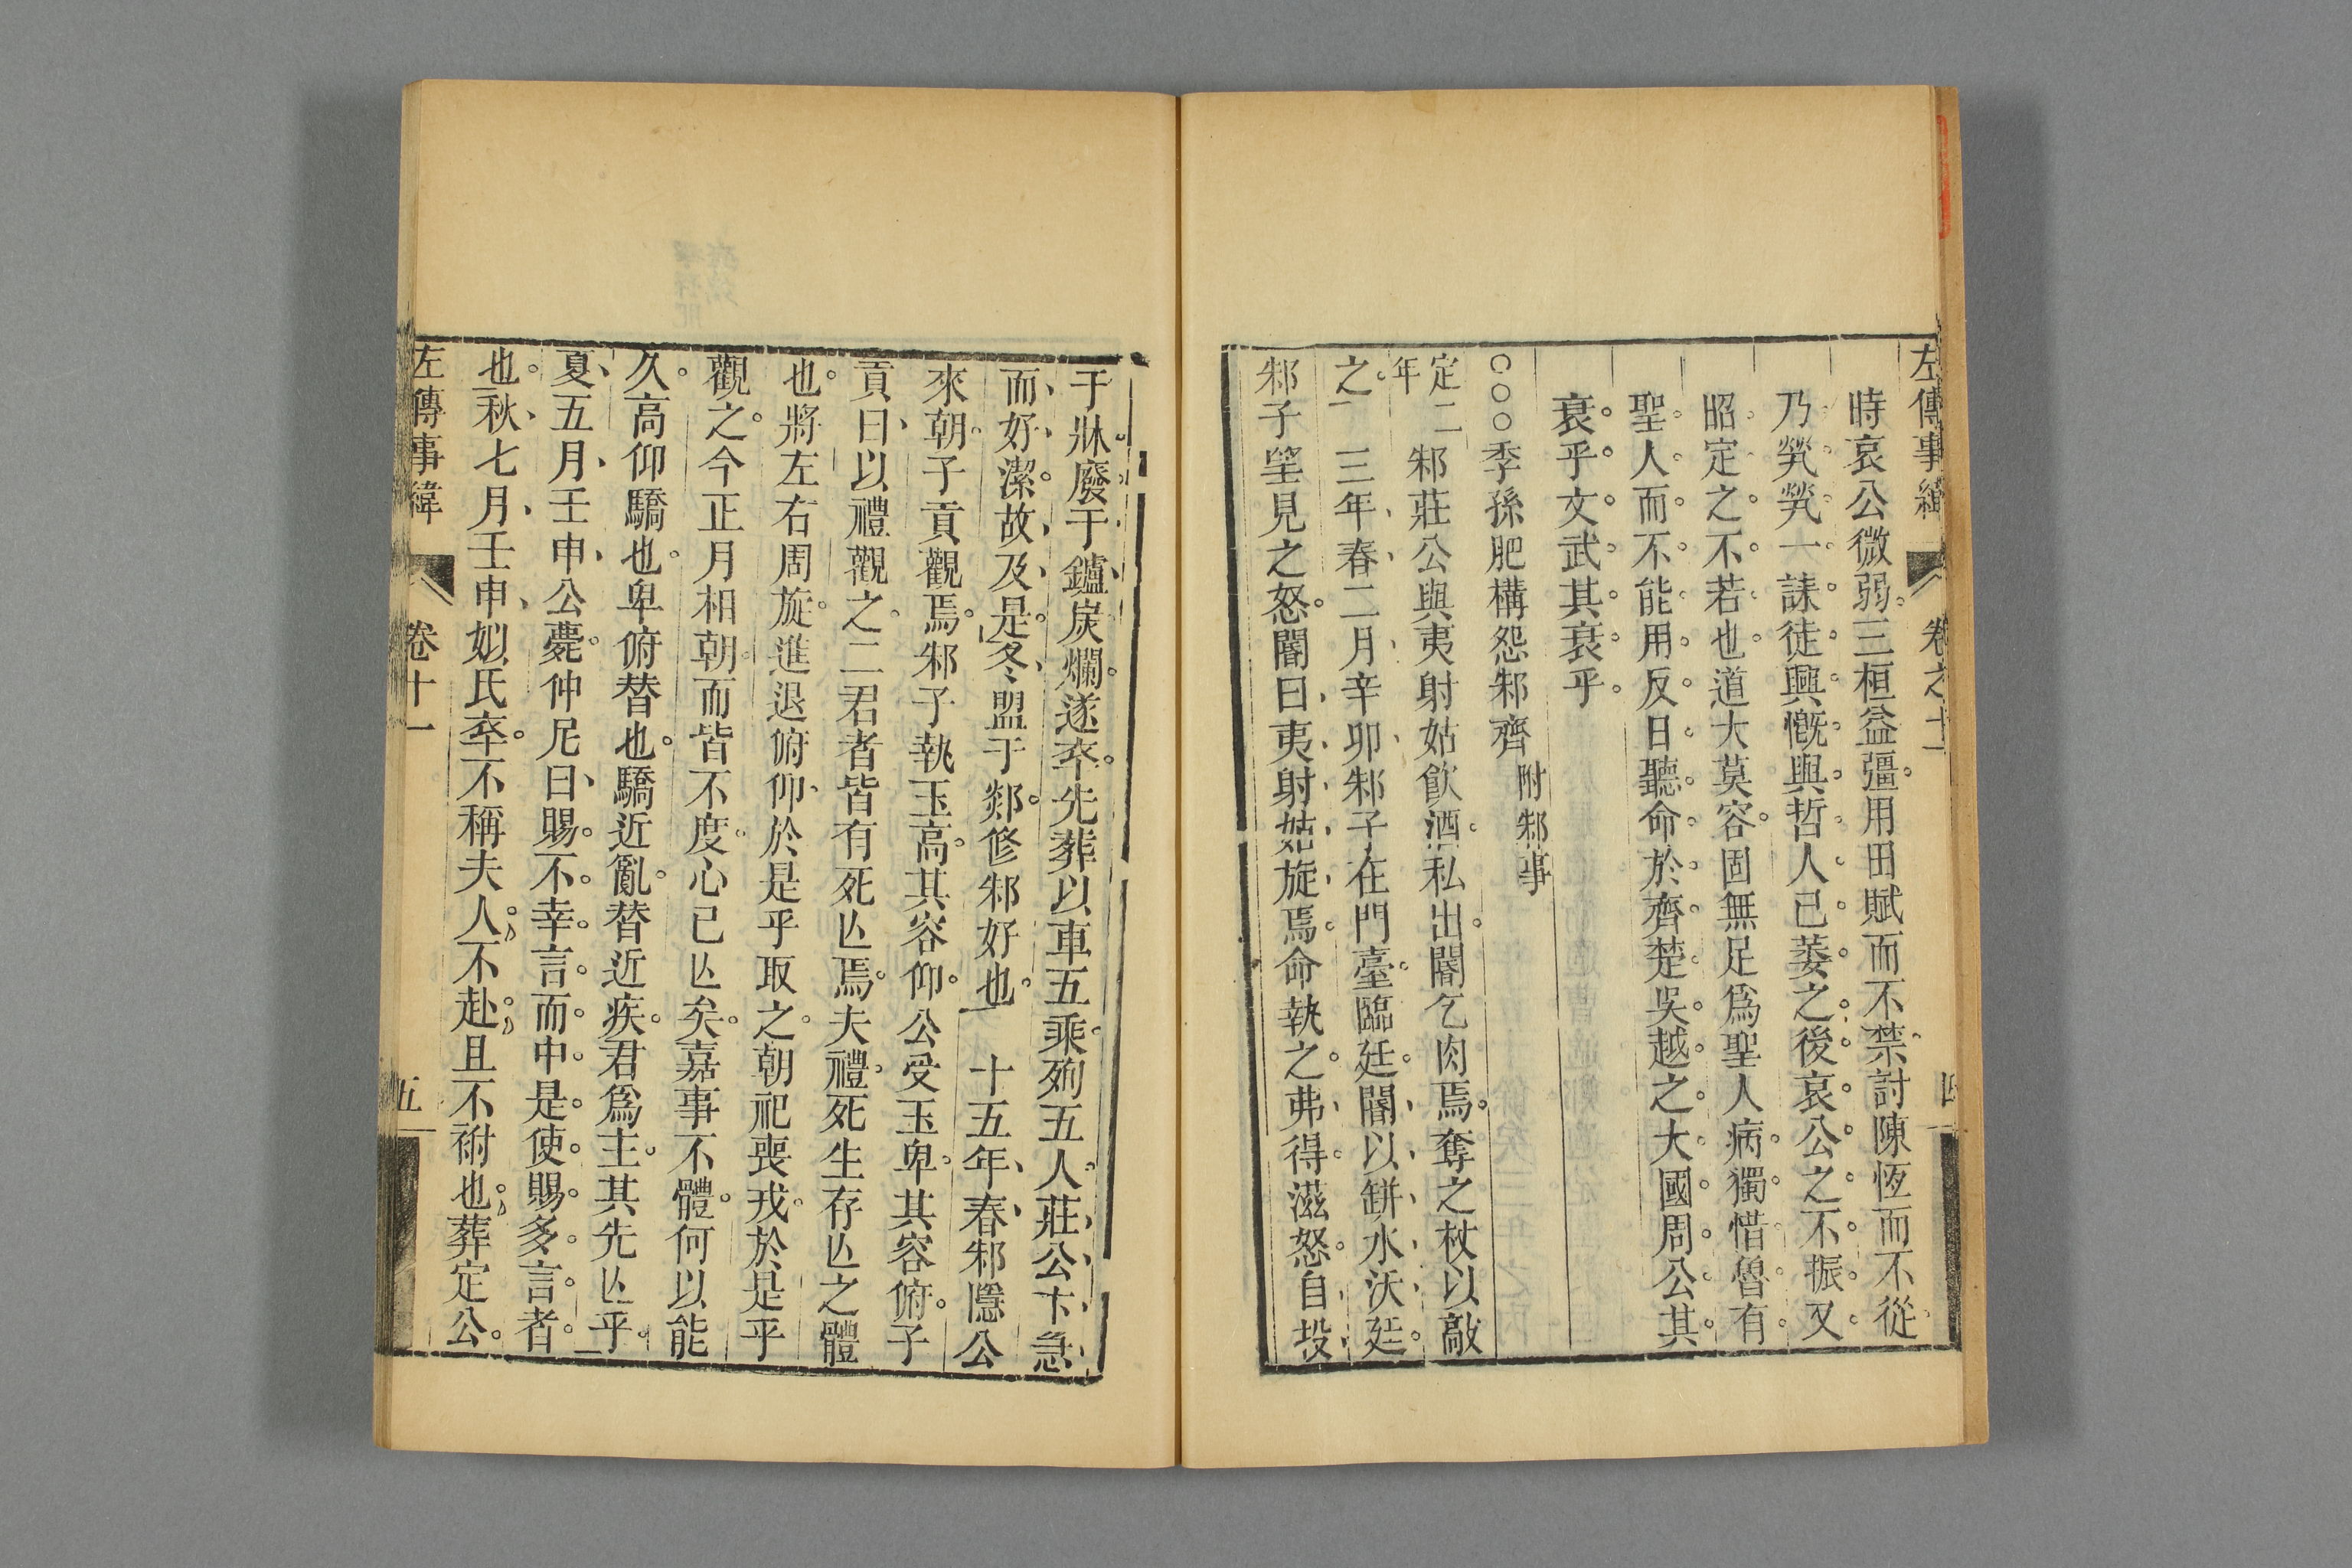 左傳事緯 卷之十一 四
時哀公微弱三桓益彊用田賦而不禁討陳恆而不從
乃煢煢一誄徒興慨與哲人已萎之後哀公之不振又
昭定之不若也道大莫容固無足爲聖人病獨惜魯有
聖人而不能用反日聽命於齊楚吳越之大國周公其
衰乎文武其衰乎
○○○季孫肥構怨邾齊附邾事
定二年邾莊公與夷射姑飲酒私出閽乞肉焉奪之杖以敲
之三年春二月辛卯邾子在門臺臨廷閽以缾水沃廷
邾子望見之怒閽曰夷射姑旋焉命執之弗得滋怒自投
于牀廢于鑪炭爛遂卒先葬以車五乘殉五人莊公卞急
而好潔故及是冬盟于郯修邾好也 十五年春邾隱公
來朝子貢觀焉邾子執玉高其容仰公受玉卑其容俯子
貢曰以禮觀之二君者皆有死亾焉夫禮死生存亾之體
也將左右周旋進退俯仰於是乎取之朝祀喪戎於是乎
觀之今正月相朝而皆不度心已亾矣嘉事不體何以能
久高仰驕也卑俯替也驕近亂替近疾君爲主其先亾乎
夏五月壬申公薨仲尼曰賜不幸言而中是使賜多言者
也秋七月壬申姒氏卒不稱夫人不赴且不祔也葬定公
左傳事緯 卷十一 五